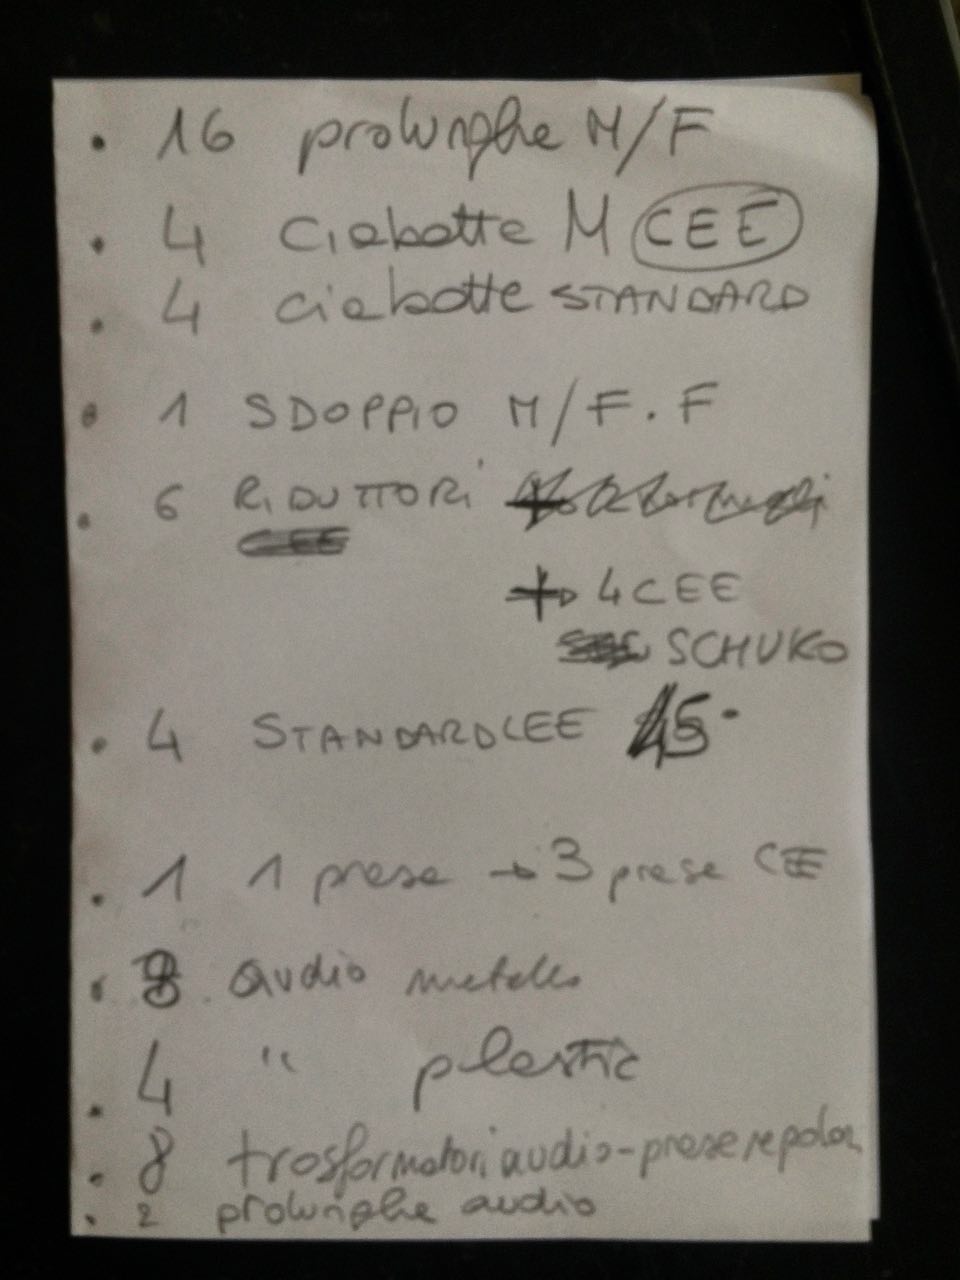 · 16 prolunghe M/F
· 4 ciabatte M CEE
· 4 ciabatte STANDARD
· 1 SDOPPIO M/F.F
· 6 RIDUTTORI
CEE
4 CEE
SCHUKO
· 4 STANDARD CEE 45
· 1 1 presa → 3 prese CEE
· 8 audio metallo
4 " plastic
· 8 trasformatori audio-prese regolar
· 2 prolunghe audio